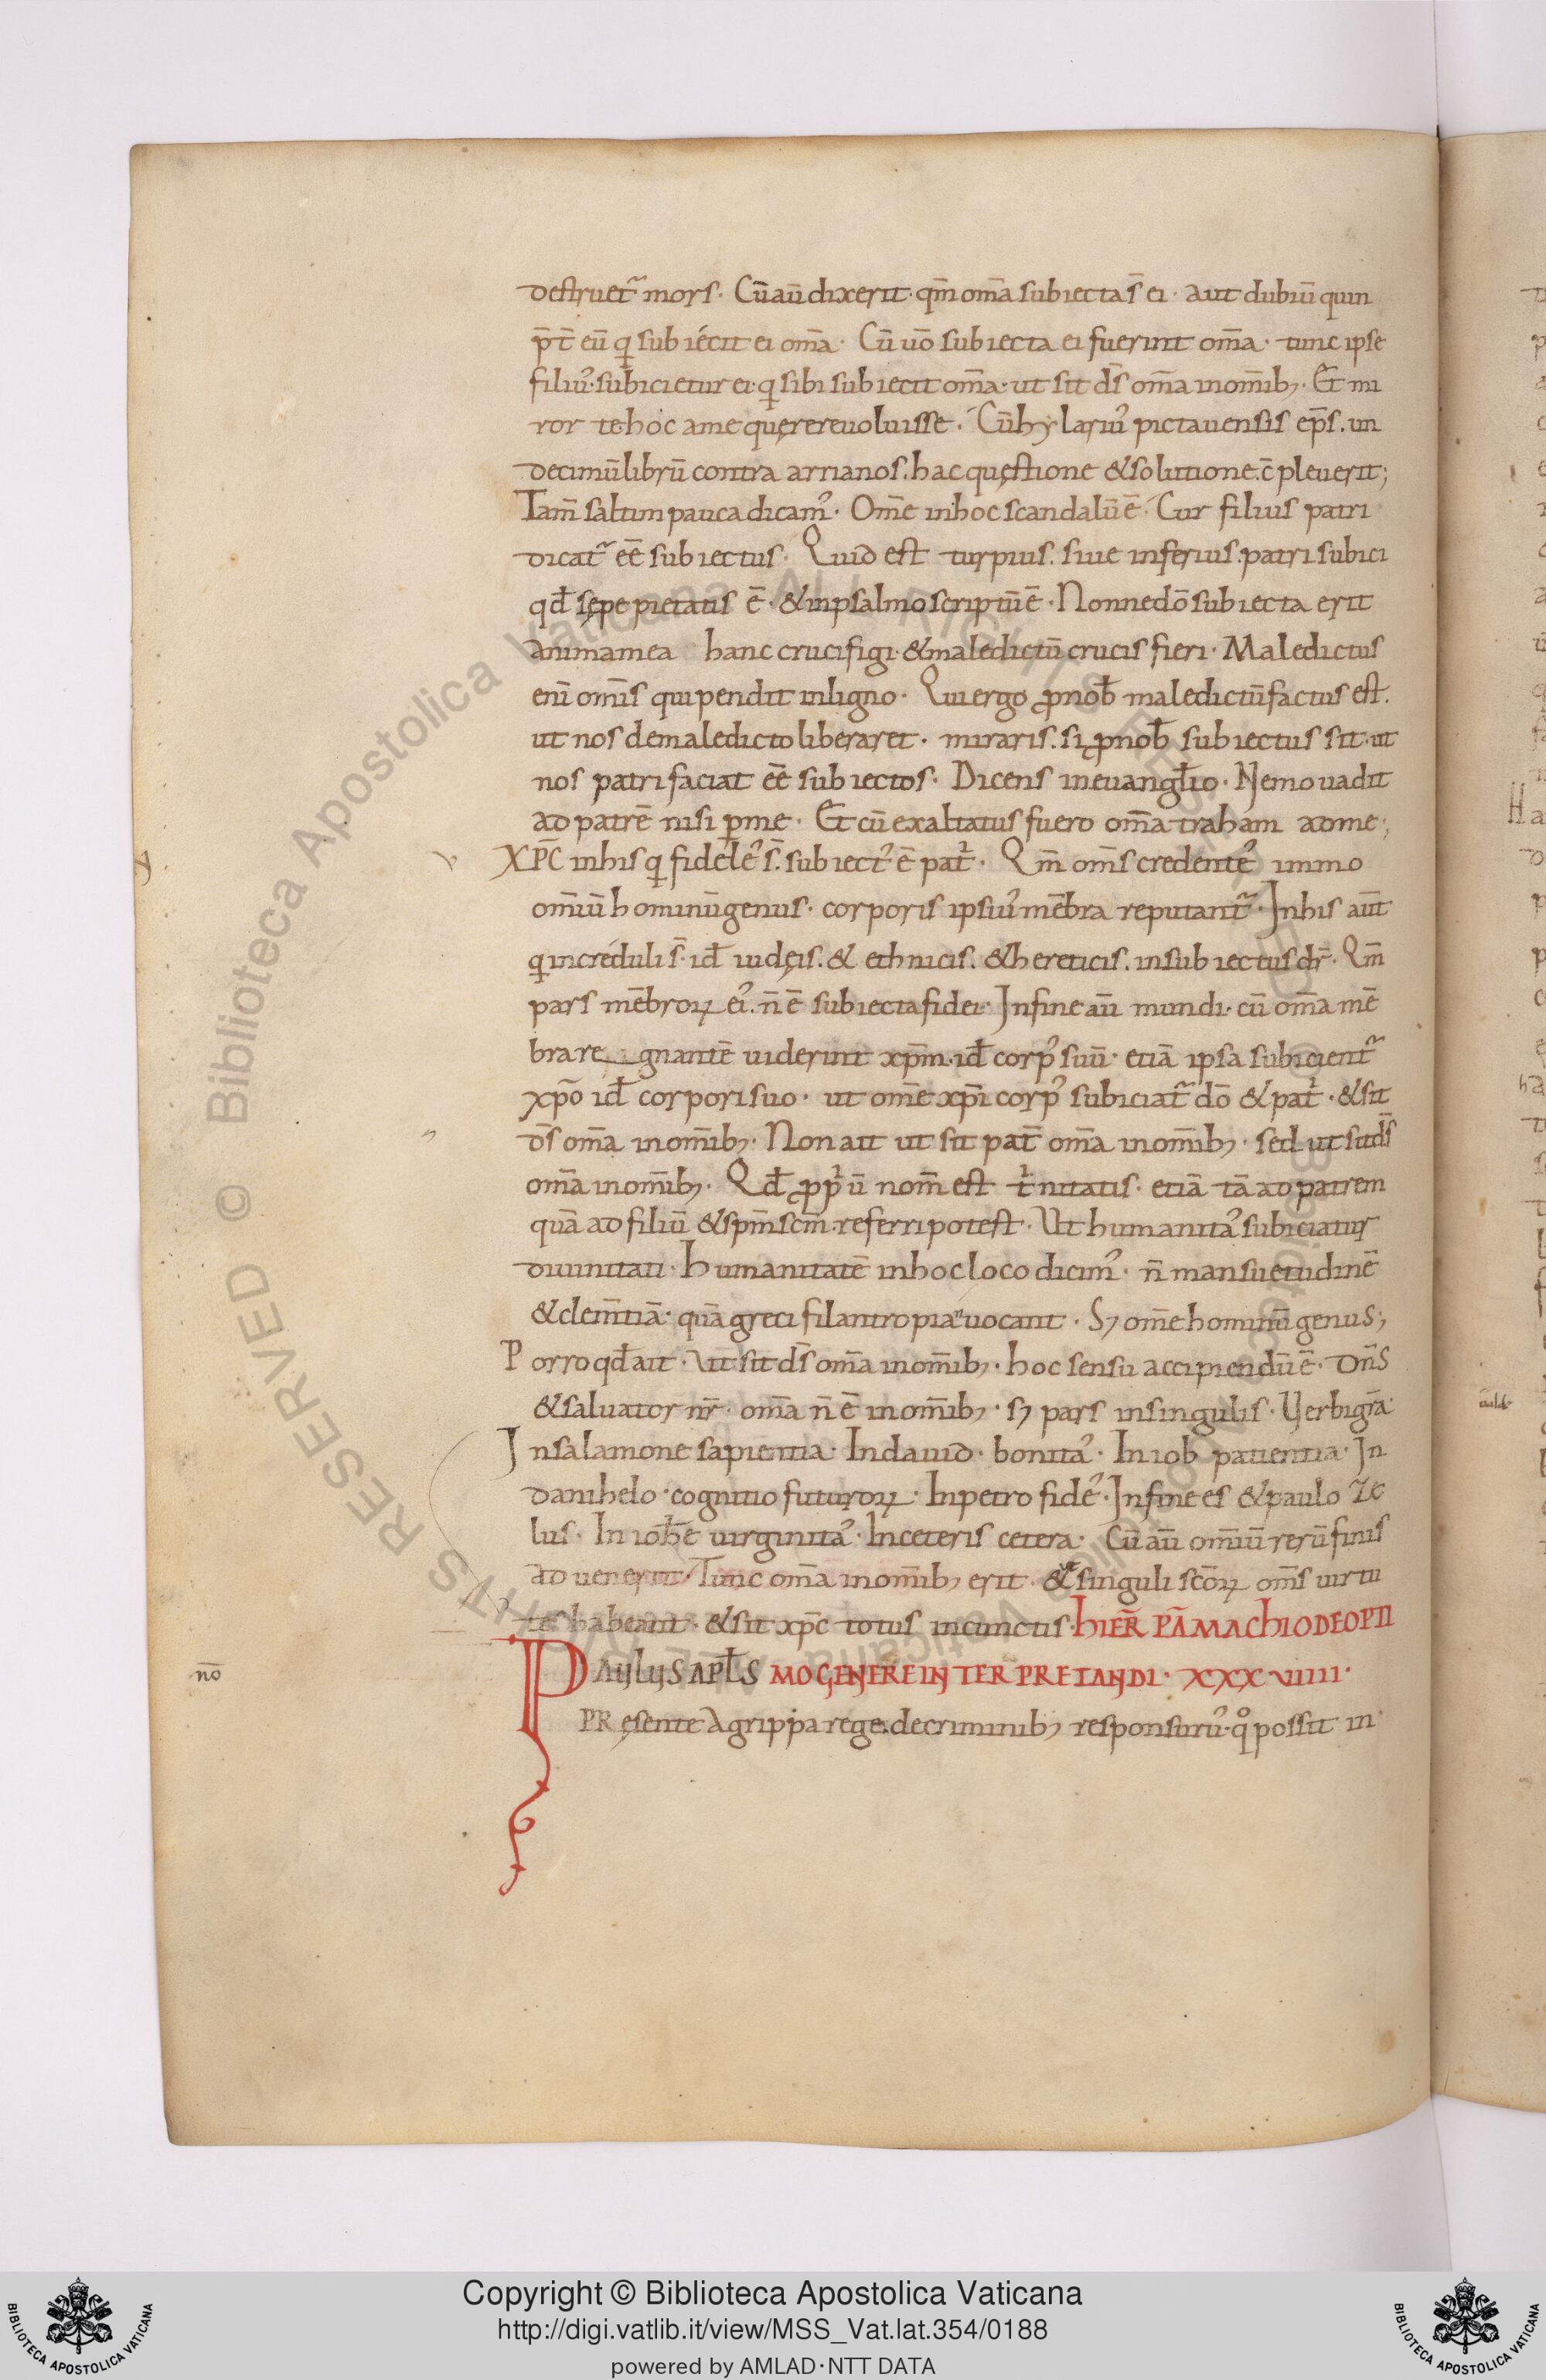 destruet᷑ mors. Cū aū dixerit. qm̄ om̄a subiecta s̄ ei. aut dubiū quin
p̄t̄ eū q̣ subiécit ei om̄a. Cū uō subiecta ei fuerint om̄a. tunc ipse
filiuꝰ. subicietur ei. q̣ sibi subiecit om̄a. ut sit d̄s om̄a inom̄ib;. Et mi
ror te hoc ame quęrere uoluisse. Cū hylariuꝰ pictauensis ep̄s. un
decimū librū contra arrianos. hac quęstione & solutione. c̄pleuerit;
Tam̄ saltim pauca dicamꝰ. Om̄e inhoc scandalū ē. Cur filius patri
dicat᷑ eē subiectus. Quid est turpius. siue inferius. patri subici
qđ sępe pietatis ē. & inpsalmo scriptū ē. Nonne dō subiecta erit
anima mea hanc crucifigi. & maledictū crucis fieri. Maledictus
eni omīs qui pendit inligno. Qui ergo ꝓ nob̄ maledictū factus est.
ut nos demaledicto liberaret. miraris. si ꝓ nob̄ subiectus sit. ut
nos patri faciat eē subiectos. Dicens ineuangłio. Nemo uadit
ad patrē nisi ꝑ me. Et cū exaltatus fuero om̄a traham adme;
XP̄C inhis q̣ fideleꝰ s̄. subiectꝰ ē pat̄. Qm̄ om̄s credenteꝰ immo
om̄iū hominū genus. corporis ipsiuꝰ mēbra reputant᷑. Inhis aūt
q̣ increduli s̄. id̄ iudęis. & ethnicis. & hereticis. insubiectus dr̄. Qm̄
pars mēbroꝝ eiꝰ. n̄ ē subiecta fidei. Infine aū mundi. cū om̄a mē
bra re gnantē uiderint xp̄m. id̄ corpꝰ suū. etiā ipsa subicient᷑
xp̄o id̄ corpori suo. ut om̄e xp̄i corpꝰ subiciat᷑ dō & pat̄. & sit
d̄s om̄a inom̄ib;. Non ait ut sit pat̄ om̄a inom̄ib;. sed ut sit d̄s
om̄a inom̄ib;. Qđ ꝓpⁱū nom̄ est tⁱnitatis. etiā tā ad patrem
quā ad filiū & sp̄m sc̄m. referri potest. Ut humanitaꝰ subiciatur
diuinitati. Humanitatē inhoc loco dicimꝰ. n̄ mansuetudinē
& clem̄tiā. quā greci filantropian uocant. S; om̄e hominū genus;
Porro qđ ait. Ut sit d̄s om̄a inom̄ib;. hoc sensu accipiendū ē. Dn̄s
& saluator nr̄. om̄a n̄ ē inom̄ib;. s; pars insingulis. Verbi gr̄a.
Insalamone sapientia. Indauid. bonitaꝰ. Iniob patientia. In
danihelo. cognitio futuroꝝ. Inpetro fideꝰ. Infinees & paulo ze
lus. In ioh̄e uirginitaꝰ. Inceteris cetera. Cū aū om̄iū rerū finis
aduenerit. Tunc om̄a inom̄ib; erit. & singuli sc̄oꝝ om̄s uirtu
tes habeant. & sit xp̄c totus incunctis. HIER̄ PĀMACHIO DE OPTI
PAULUS APŁS MO GENERE INTERPRETANDI. XXXVIIII.
no᷒
PRęsente Agrippa rege. decriminib; responsuruꝰ. qͦ possit in
Copyright © Biblioteca Apostolica Vaticana
http://digi.vatlib.it/view/MSS_Vat.lat.354/0188
powered by AMLAD·NTT DATA
BIBLIOTECA APOSTOLICA VATICANA
BIBLIOTECA APOSTOLICA VATICANA